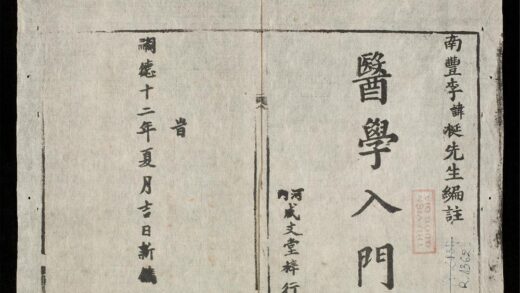 南豐李諱梴先生編註
醫學入門
河內
文堂梓行
旹
嗣德十二年夏月吉日新鐫
R.1365